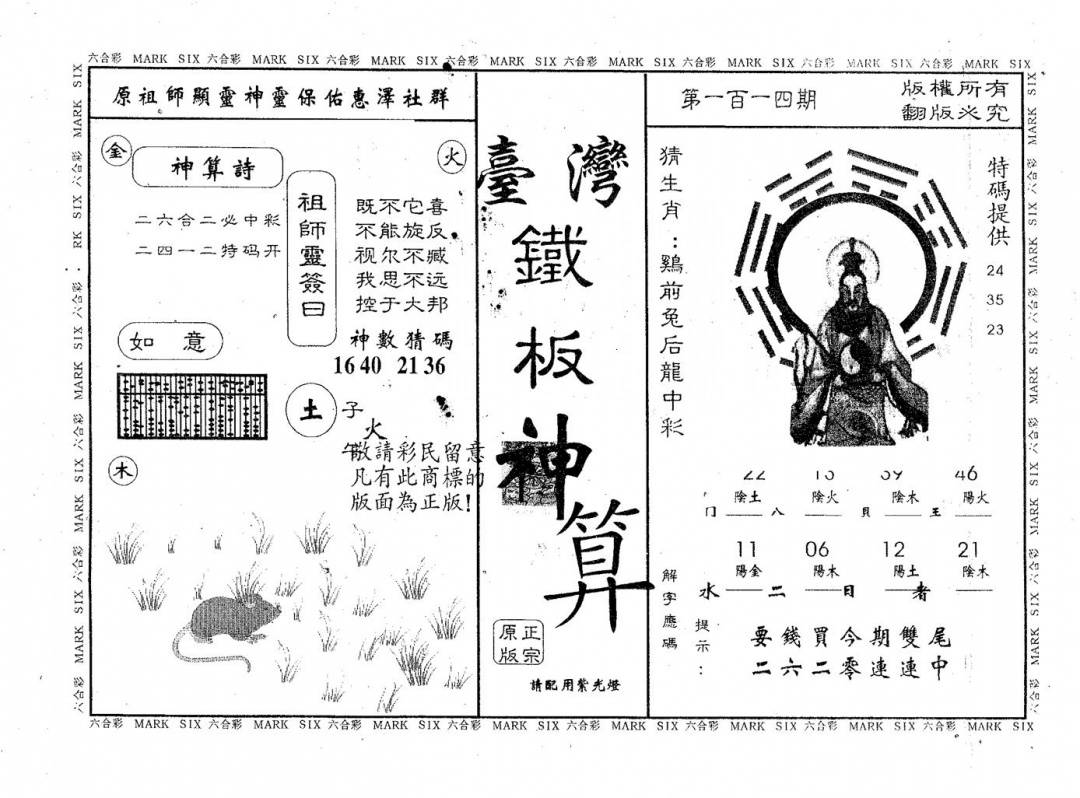 六合彩 MARK SIX 六合彩 MARK SIX 六合彩 MARK SIX 六合彩 MARK SIX 六合彩 MARK SIX 六合彩 MARK SIX 六合彩 MARK SIX 六合彩 MARK SIX
原祖師顯靈神靈保佑惠澤社群
金
火
神算詩
二六合二必中彩
二四一二特码开
祖師靈簽曰
既不它喜
不能旋反
视尔不臧
我思不远
控于大邦
神數猜碼
16 40 21 36
如意
土
子
火
午
敬請彩民留意
凡有此商標的
版面為正版!
木
臺灣
鐵
板
神
算
正宗
原版
請配用紫光燈
第一百一四期
版權所有
翻版必究
猜生肖:鷄前兔后龍中彩
特碼提供
24
35
23
22 46
陰土 陰火 陰木 陽火
八 貝 王
11 06 12 21
陽金 陽木 陽土 陰木
水 二 日 者
解字應碼
提示:
要錢買今期雙尾
二六二零連連中
六合彩 MARK SIX 六合彩 MARK SIX 六合彩 MARK SIX 六合彩 MARK SIX 六合彩 MARK SIX 六合彩 MARK SIX 六合彩 MARK SIX 六合彩 MARK SIX